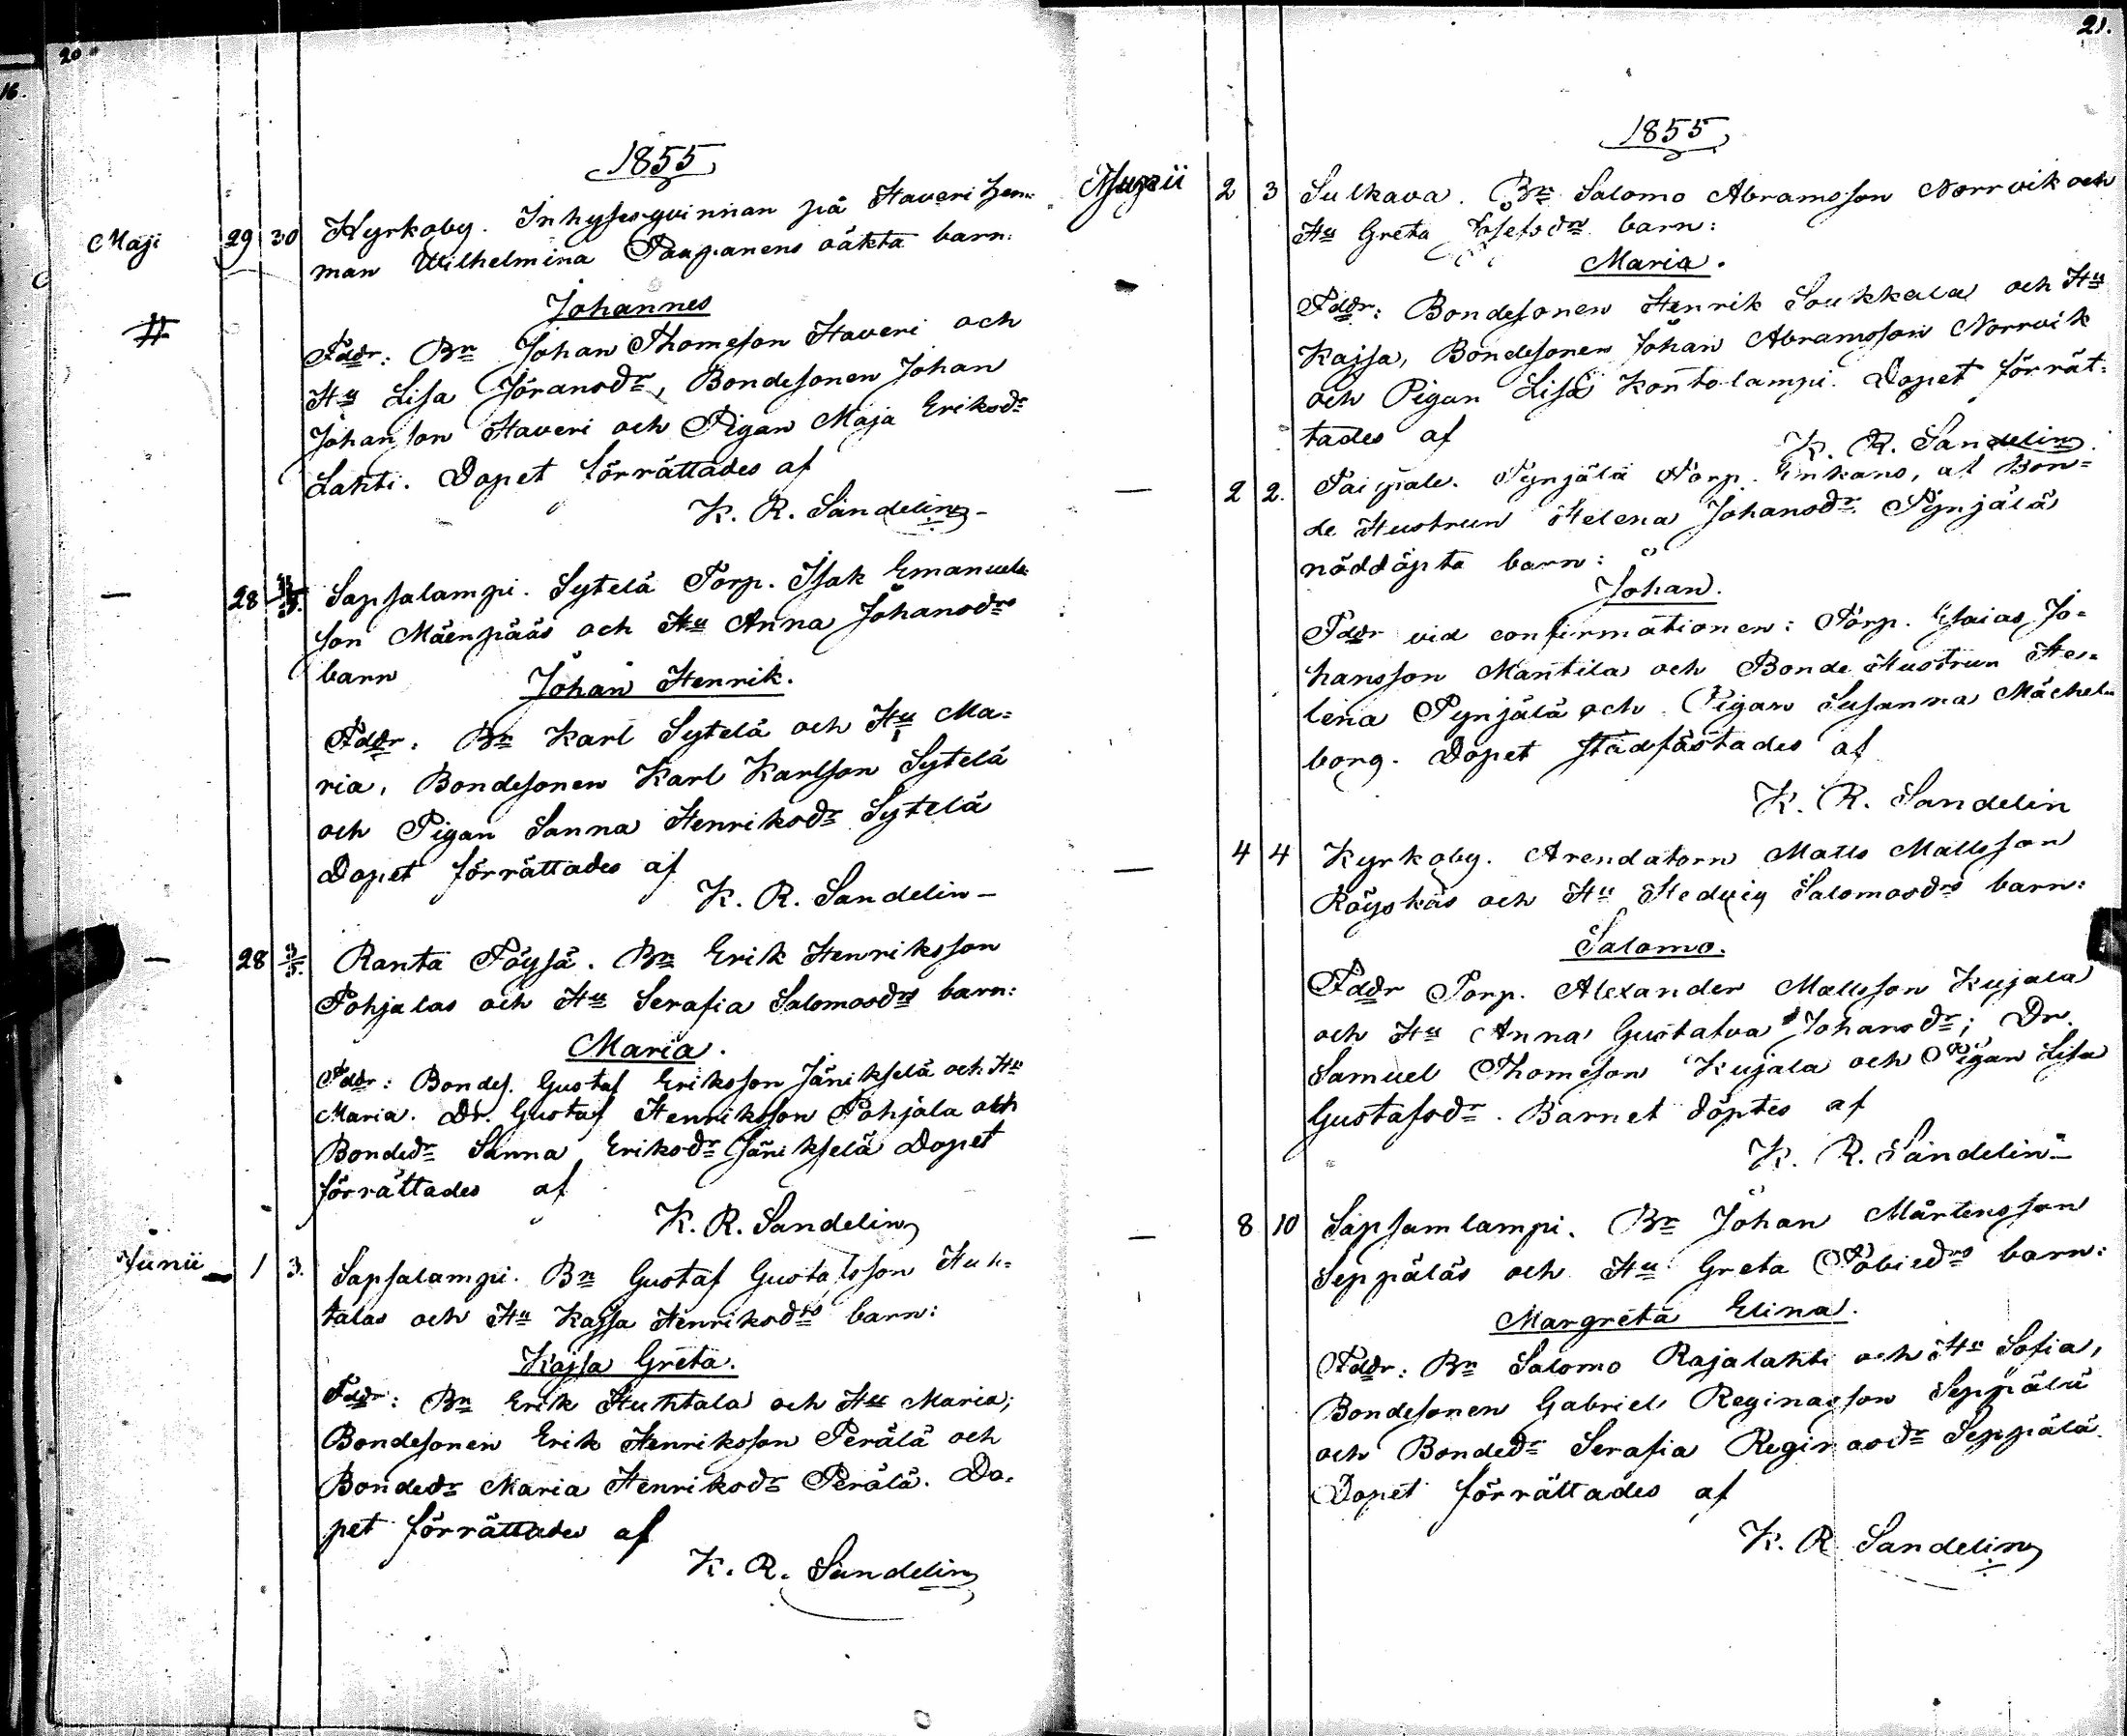 20
16.
1855
Maji 29 30 Kyrkoby. Inhyses qvinnan på Haveri hem-
man Wilhelmina Paapanens oäkta barn:
Johannes
#
Faddr: Bn Johan Thomeson Haveri och
Hu Lisa Jöransdr, Bondesonen Johan
Johanson Haveri och Pigan Maja Eriksdr
Lahti. Dopet förrättades af
K. R. Sandelin
— 28 Sapsalampi. Sytelä Torp. Isak Emanuels-
son Mäenpääs och Hu Anna Johansdrs
barn Johan Henrik.
Faddr: Bn Karl Sytelä och Hu Ma=
ria, Bondesonen Karl Karlson Sytelä
och Pigan Sanna Henriksdr Sytelä
Dopet förrättades af
K. R. Sandelin —
— 28 3/5. Ranta Töysä. Bn Erik Henriksson
Pohjalas och Hu Serafia Salomosdrs barn:
Maria.
Faddr: Bondes. Gustaf Eriksson Jänikselä och Hu
Maria. Dr. Gustaf Henriksson Pohjala och
Bondedr Sanna Eriksdr Jänikselä Dopet
förrättades af
K. R. Sandelin
Junii 1 3. Sapsalampi. Bn Gustaf Gustafsson Huh=
talas och Hu Kajsa Henriksdrs barn:
Kajsa Greta.
Faddr: Bn Erik Huhtala och Hu Maria;
Bondesonen Erik Henriksson Perälä och
Bondedr Maria Henriksdr Perälä. Do-
pet förrättades af
K. R. Sandelin
21.
1855
Junii 2 3 Sulkava. Bn Salomo Abramsson Norrvik och
Hu Greta Josefsdrs barn:
Maria.
Faddr: Bondesonen Henrik Soukkala och Hu
Kajsa, Bondesonen Johan Abramsson Norrvik
och Pigan Lisa Kontolampi. Dopet förrät=
tades af
K. R. Sandelin.
— 2 2. Taipale. Pynjälä Torp. Enkans, af Bon=
de Hustrun Helena Johansdr Pynjälä
nöddöpta barn:
Johan.
Faddr vid confirmationen: Torp. Esaias Jo=
hansson Mantila och Bonde Hustrun He=
lena Pynjälä och Pigan Susanna Mächel=
borg. Dopet stadfästades af
K. R. Sandelin
— 4 4 Kyrkoby. Arendatorn Matts Mattsson
Röyskäs och Hu Hedvig Salomosdrs barn:
Salomo.
Faddr Torp. Alexander Mattsson Kujala
och Hu Anna Gustafva Johansdr; Dr.
Samuel Thomeson Kujala och Pigan Lisa
Gustafsdr. Barnet döptes af
K. R. Sandelin —
— 8 10 Sapsamlampi. Bn Johan Mårtensson
Seppäläs och Hu Greta Tobiedrs barn:
Margreta Elina.
Faddr: Bn Salomo Rajalahti och Hu Sofia,
Bondesonen Gabriel Reginasson Seppälä
och Bondedr Serafia Reginasdr Seppälä.
Dopet förrättades af
K. R Sandelin